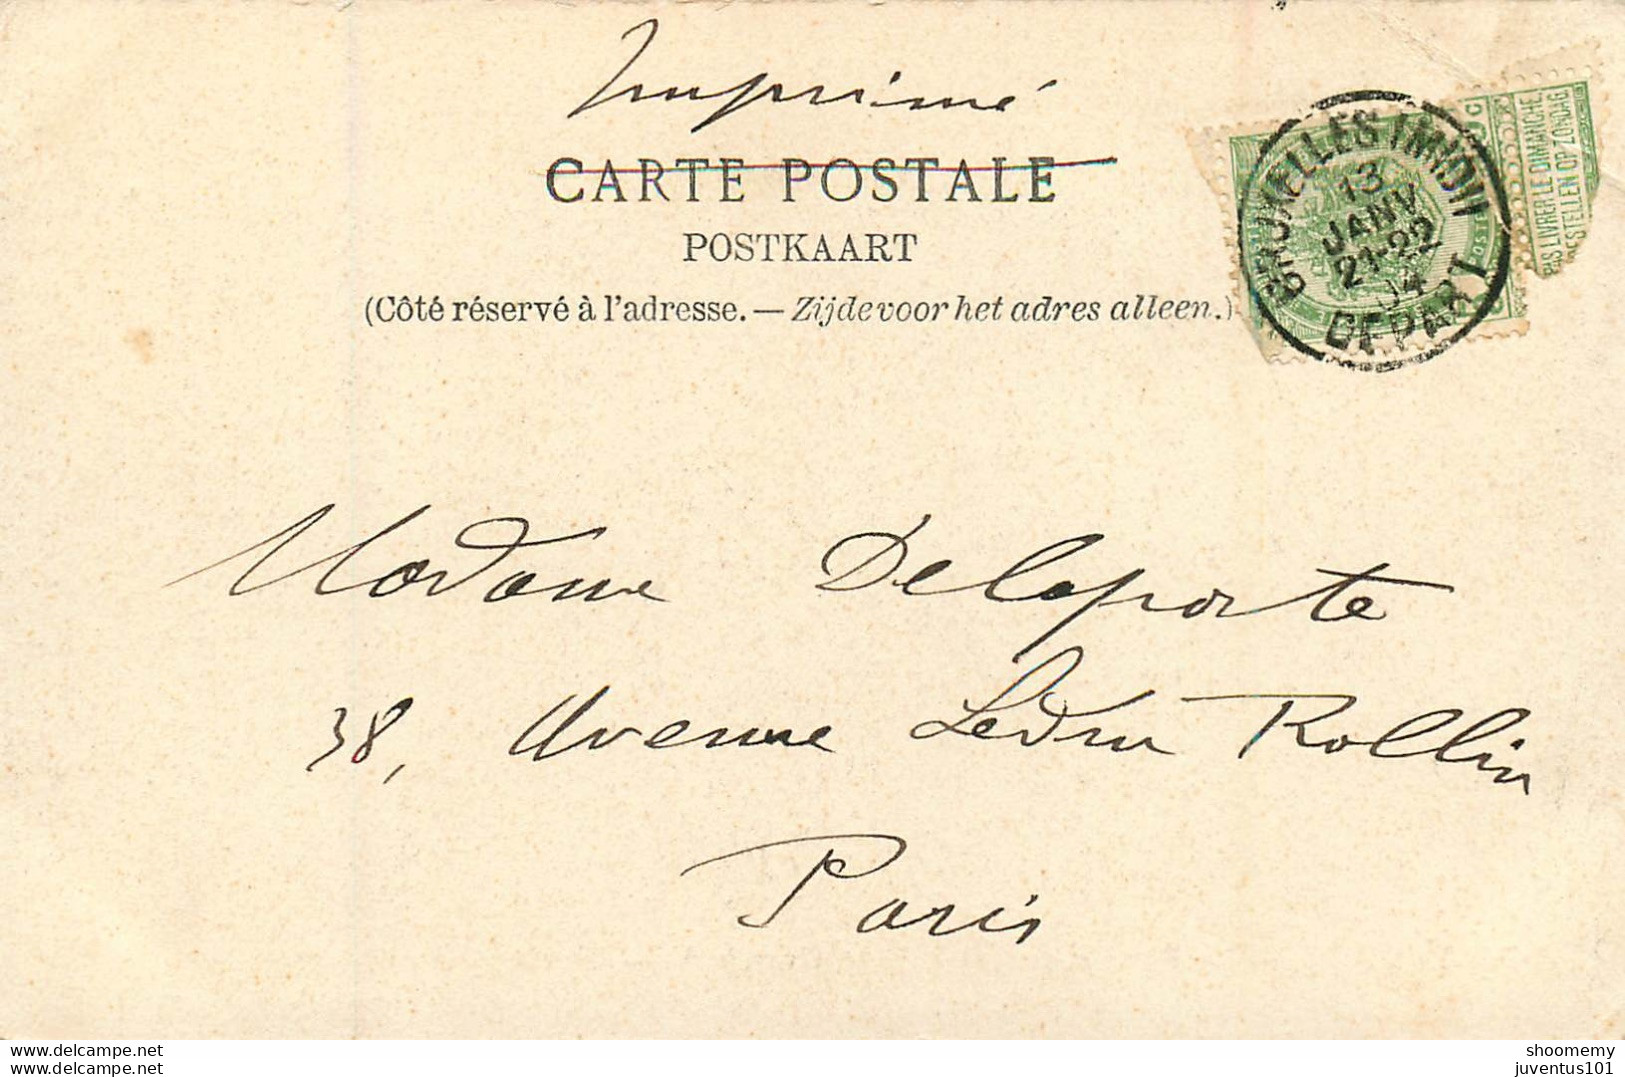 Imprimé
CARTE POSTALE
POSTKAART
(Côté réservé à l'adresse. — Zijde voor het adres alleen.)
BRUXELLES (MIDI)
13
JANV
21-22
04
DEPART
PAS LIVRER LE DIMANCHE
BESTELLEN OP ZONDAG
Madame Delaporte
38, Avenue Ledru Rollin
Paris
Delcampe.net
shoomemy
juventus101